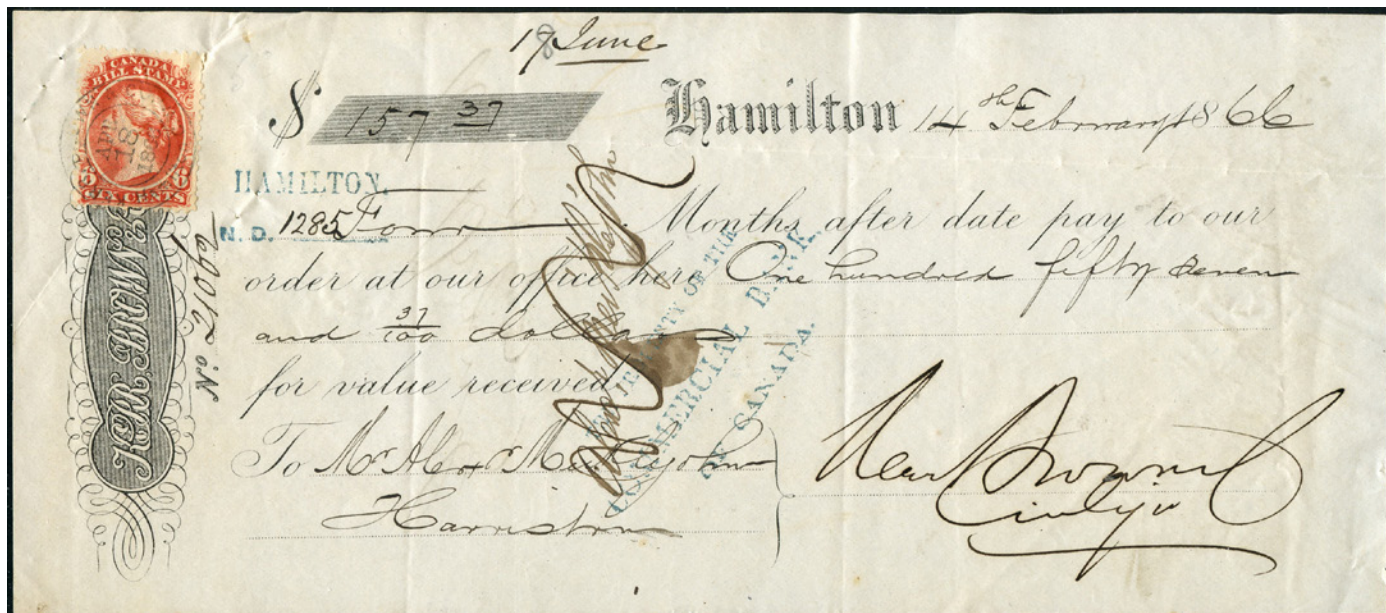 17 June
$ 157 37
Hamilton 14th February 1866
CANADA
BILL STAMP
SIX CENTS
HAMILTON.
N. D. 1285 Four Months after date pay to our
order at our office here One hundred fifty seven
and 37/100 dollars
for value received
To Mr Alexr Meiklejohn
Harriston
THE PROPERTY OF THE
COMMERCIAL BANK
OF CANADA.
KERR BROWN &
No